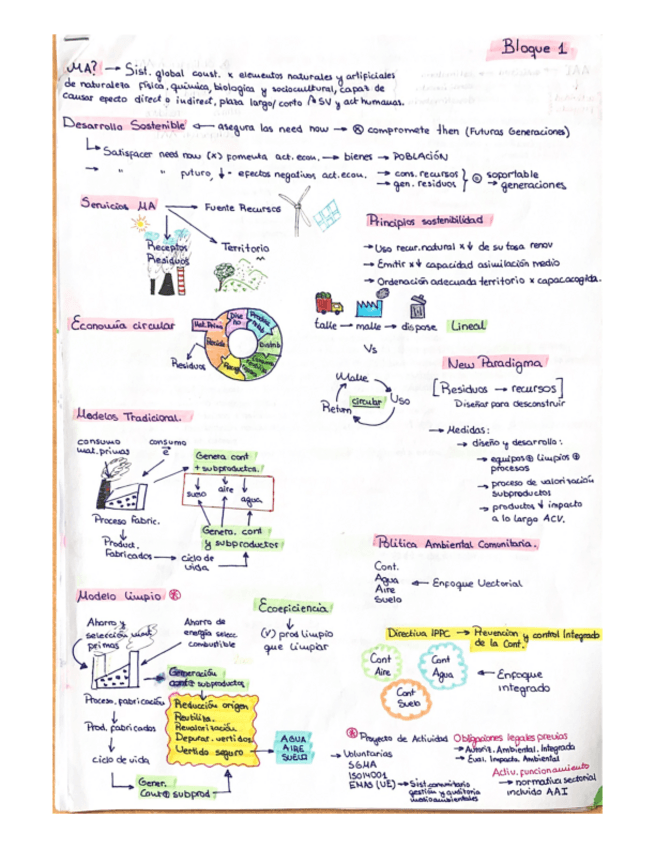 Bloque 1
MA? → Sist. global const. x elementos naturales y artificiales
de naturaleza física, química, biológica y sociocultural, capaz de
causar efecto direct o indirect, plazo largo/corto SV y act humanas.
Desarrollo Sostenible ← asegura las need now → compromete then (Futuras Generaciones)
Satisfacer need now (x) fomenta act. econ. → bienes → POBLACIÓN
→ " " futuro, ↓ efectos negativos act. econ. → cons. recursos
→ gen. residuos
soportable
→ generaciones
Servicios MA → Fuente Recursos
Receptos
Residuos
Territorio
Principios sostenibilidad
→ Uso recur. natural x ↓ de su tasa renov
→ Emitir x ↓ capacidad asimilación medio
→ Ordenación adecuada territorio x capac acogida.
Economía circular
Mat. Prima
Dise
ño
Distrib
Recicla
Residuos
take → make → dispose Lineal
Vs
Make
circular
Uso
Return
New Paradigma
[Residuos → recursos]
Diseñar para desconstruir
→ Medidas:
→ diseño y desarrollo:
→ equipos ⊕ limpios ⊕
procesos
→ proceso de valorización
subproductos
→ productos ↓ impacto
a lo largo ACV.
Modelos Tradicional.
consumo
mat. primas
consumo
e
Genera cont
+ subproductos.
suelo
aire
agua
Proceso Fabric.
Product.
Fabricados → ciclo de
vida
Genera. cont
y subproductos
Política Ambiental Comunitaria.
Cont.
Agua
Aire
Suelo
← Enfoque Vectorial
Modelo Limpio
Ahorro y
selección mat.
primas
Ahorro de
energía selecc
combustible
Ecoeficiencia
(v) prod limpio
que limpiar
Generación
cont + subproductos
Proceso, fabricación
Prod. fabricados
ciclo de vida
Gener.
Cont ⊕ subprod
Reducción origen
Reutiliza.
Revalorización
Depurat. vertidos
Vertido seguro
AGUA
AIRE
SUELO
Directiva IPPC → Prevencion y control Integrado
de la Cont.
Cont
Aire
Cont
Agua
Cont
Suelo
← Enfoque
integrado
Proyecto de Actividad Obligaciones legales previas
→ Voluntarias
SGMA
ISO14001
EMAS (UE) → Sist. comunitario
gestión y auditoría
medioambientales
→ Autoriz. Ambiental. Integrada
→ Eval. Impacto. Ambiental
Activ. funcionamiento
→ normativa sectorial
incluido AAI